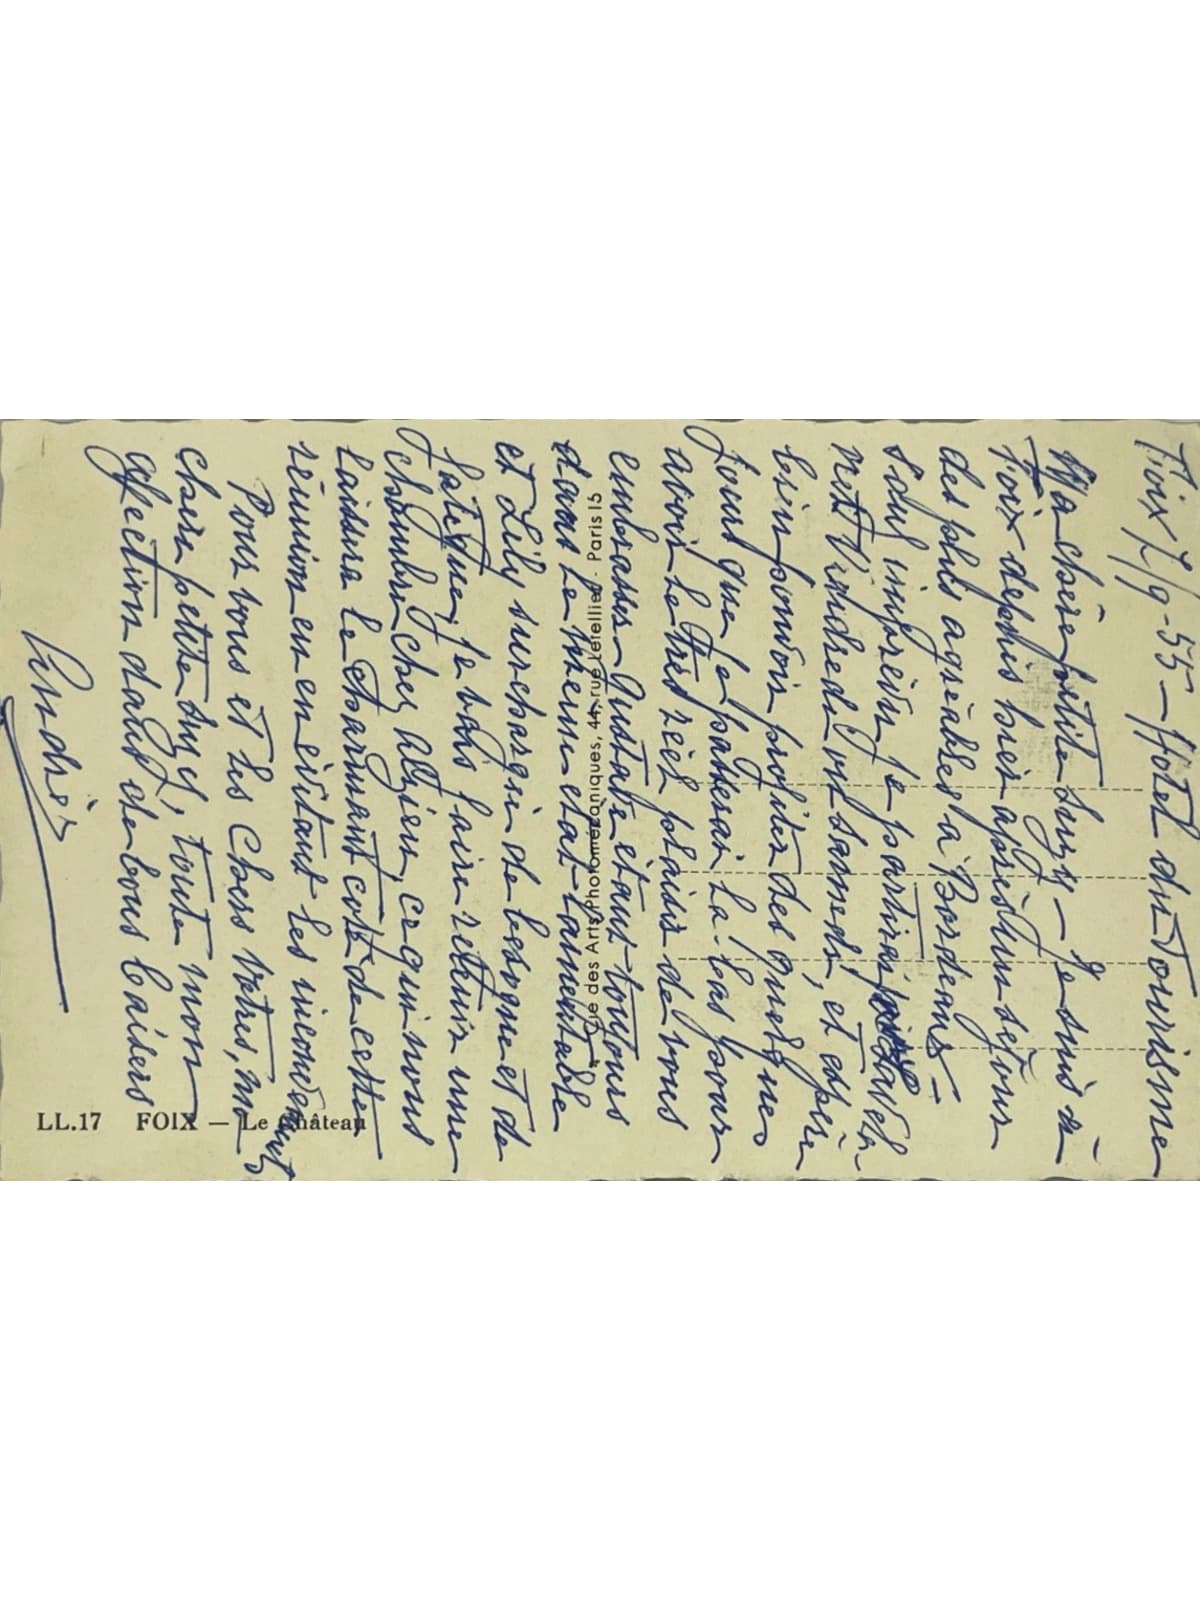 Foix 7/9-55 - Hotel du Tourisme
Ma chère petite Suzy - Je suis à
Foix depuis hier après un séjour
des plus agréables à Bordeaux -
Sauf imprévu je partirai pour Lavela-
net Vendredi ou Samedi, et espère
bien pouvoir profiter des quelques
jours que je passerai là-bas pour
avoir le très réel plaisir de vous
embrasser - Gustave étant toujours
dans le même état lamentable
et Lily surchargée de besogne et de
fatigue, je vais faire retenir une
chambre chez Alzieu, ce qui nous
laissera le charmant coté de cette
réunion en en évitant les inconvénients
Pour vous et les chers vôtres, ma
chère petite Suzy, toute mon
affection dans de bons baisers
André
LL.17 FOIX — Le Château
des Arts Photomécaniques, 44, rue Letellier. Paris 15